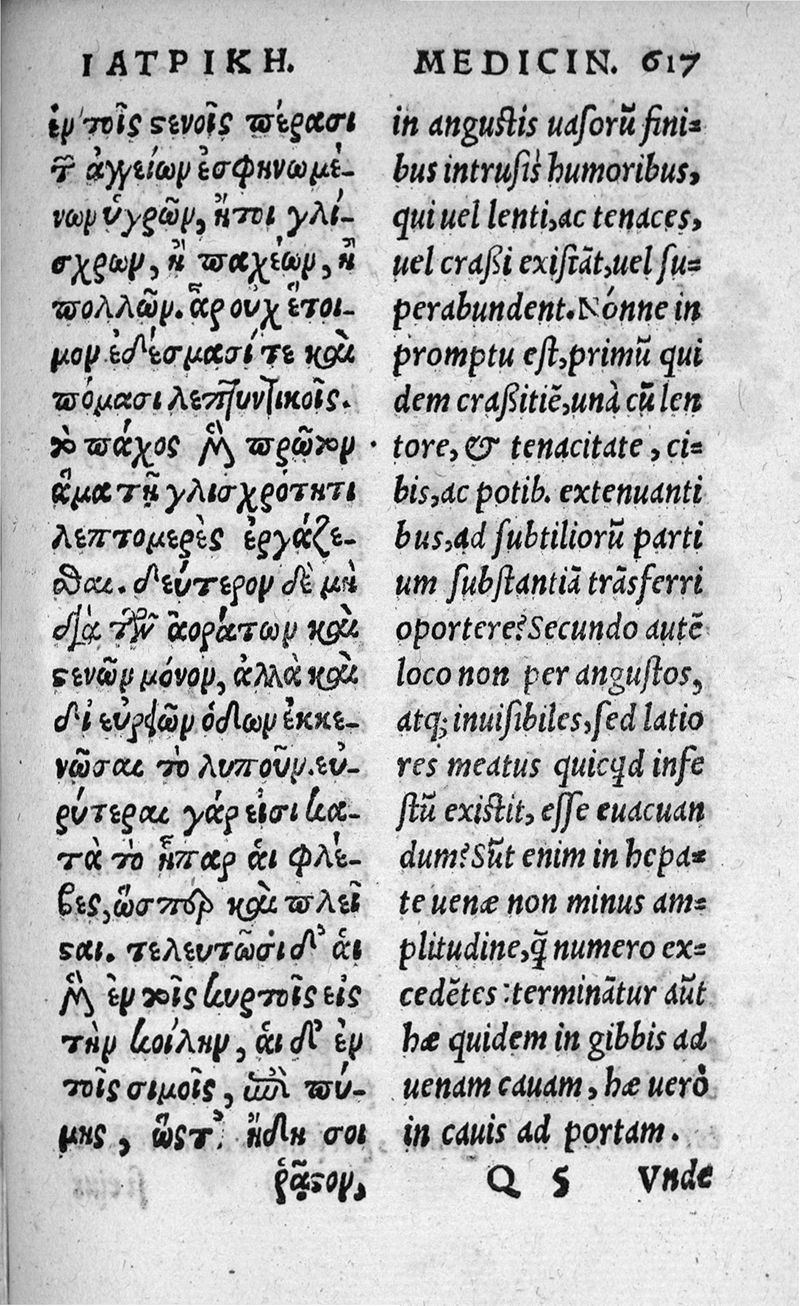 ΙΑΤΡΙΚΗ.
ἐν τοῖς στενοῖς πέρασι
τῶν ἀγγείων ἐσφηνωμέ-
νων ὑγρῶν, ἤτοι γλί-
σχρων, ἢ παχέων, ἢ
πολλῶν. ἆρ οὐχ ἕτοι-
μον ἐδέσμασί τε καὶ
πόμασι λεπτυντικοῖς.
τὸ πάχος μὲν πρῶτον
ἅμα τῇ γλισχρότητι
λεπτομερὲς ἐργάζε-
σθαι. δεύτερον δὲ μὴ
διὰ τῶν ἀοράτων καὶ
στενῶν μόνον, ἀλλὰ καὶ
δι εὐρέων ὁδῶν ἐκκε-
νῶσαι τὸ λυποῦν. εὐ-
ρύτεραι γάρ εἰσι κα-
τὰ τὸ ἧπαρ αἱ φλέ-
βες, ὥσπερ καὶ πλεῖ
σται. τελευτῶσι δ' αἱ
μὲν ἐν τοῖς κυρτοῖς εἰς
τὴν κοίλην, αἱ δ' ἐν
τοῖς σιμοῖς, ἐπὶ πύ-
λης, ὥστ' ἤδη σοι
ῥᾷστον,
MEDICIN. 617
in angustis uasorū fini=
bus intrusis humoribus,
qui uel lenti, ac tenaces,
uel craßi existāt, uel su=
perabundent. Nónne in
promptu est, primū qui
dem craßitiē, unà cū len
tore, & tenacitate, ci=
bis, ac potib. extenuanti
bus, ad subtiliorū parti
um substantiā trāsferri
oportere? Secundo autē
loco non per angustos,
atq; inuisibiles, sed latio
res meatus quicqd infe
stū existit, esse euacuan
dum? Sūt enim in hepa=
te uenæ non minus am=
plitudine, q̄ numero ex=
cedētes: terminātur aūt
hæ quidem in gibbis ad
uenam cauam, hæ uerò
in cauis ad portam.
Q 5 Vnde